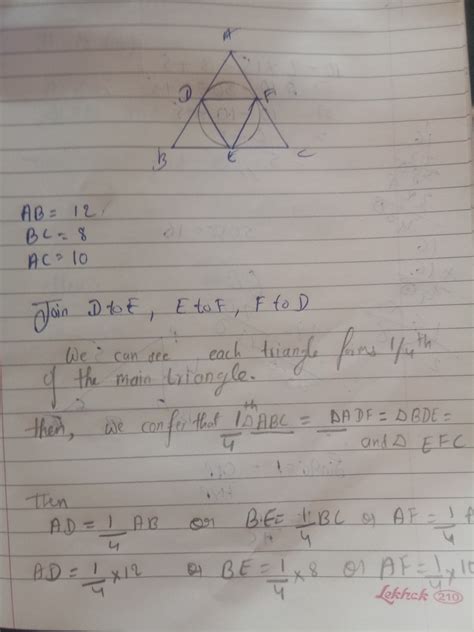 A
D F
B E C
AB = 12
BC = 8
AC = 10
Join D to E, E to F, F to D
We can see each triangle forms 1/4th
of the main triangle.
then, we confer that 1/4th ΔABC = ΔADF = ΔBDE =
and Δ EFC
then
AD = 1/4 AB or BE = 1/4 BC or AF = 1/4
AD = 1/4 × 12 or BE = 1/4 × 8 or AF = 1/4 × 10
Lekhak 210